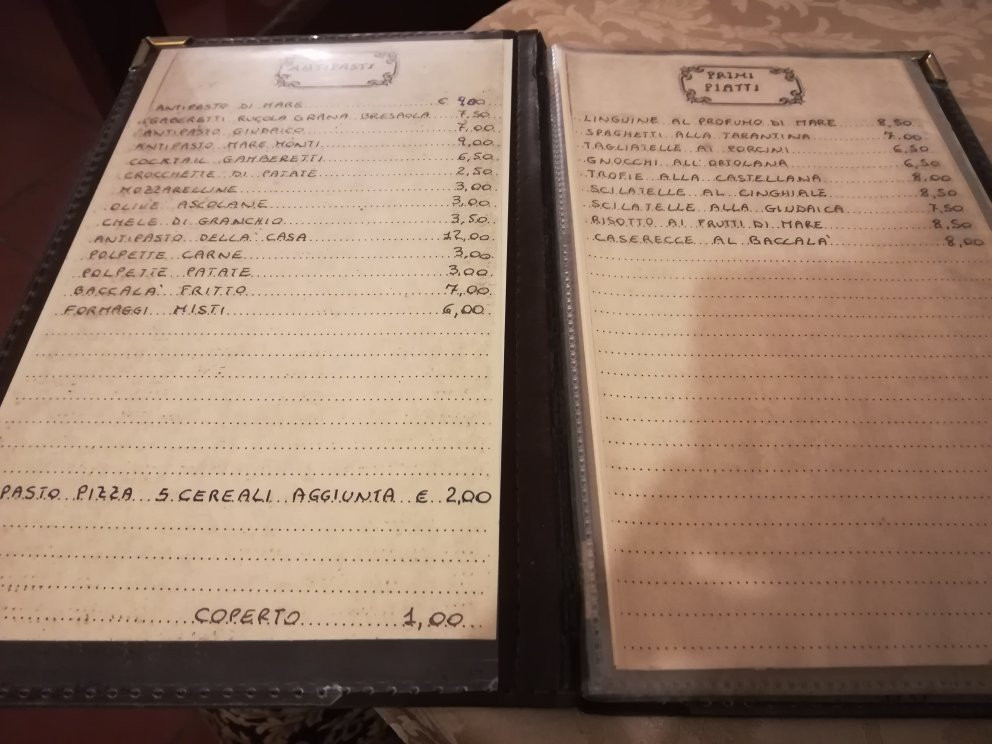 ANTIPASTI
ANTIPASTO DI MARE € 9,00
SGABERETTI RUCOLA GRANA BRESAOLA 7,50
ANTIPASTO GIUDAICO 7,00
ANTIPASTO MARE MONTI 9,00
COCKTAIL GAMBERETTI 6,50
CROCCHETTE DI PATATE 2,50
MOZZARELLINE 3,00
OLIVE ASCOLANE 3,00
CHELE DI GRANCHIO 3,50
ANTIPASTO DELLA CASA 12,00
POLPETTE CARNE 3,00
POLPETTE PATATE 3,00
BACCALA' FRITTO 7,00
FORMAGGI MISTI 6,00
PASTO PIZZA 5 CEREALI AGGIUNTA € 2,00
COPERTO 1,00
PRIMI
PIATTI
LINGUINE AL PROFUMO DI MARE 8,50
SPAGHETTI ALLA TARANTINA 7,00
TAGLIATELLE AI PORCINI 6,50
GNOCCHI ALL'ORTOLANA 6,50
TROFIE ALLA CASTELLANA 8,00
SCILATELLE AL CINGHIALE 8,50
SCILATELLE ALLA GIUDAICA 7,50
RISOTTO AI FRUTTI DI MARE 8,50
CASERECCE AL BACCALA' 8,00